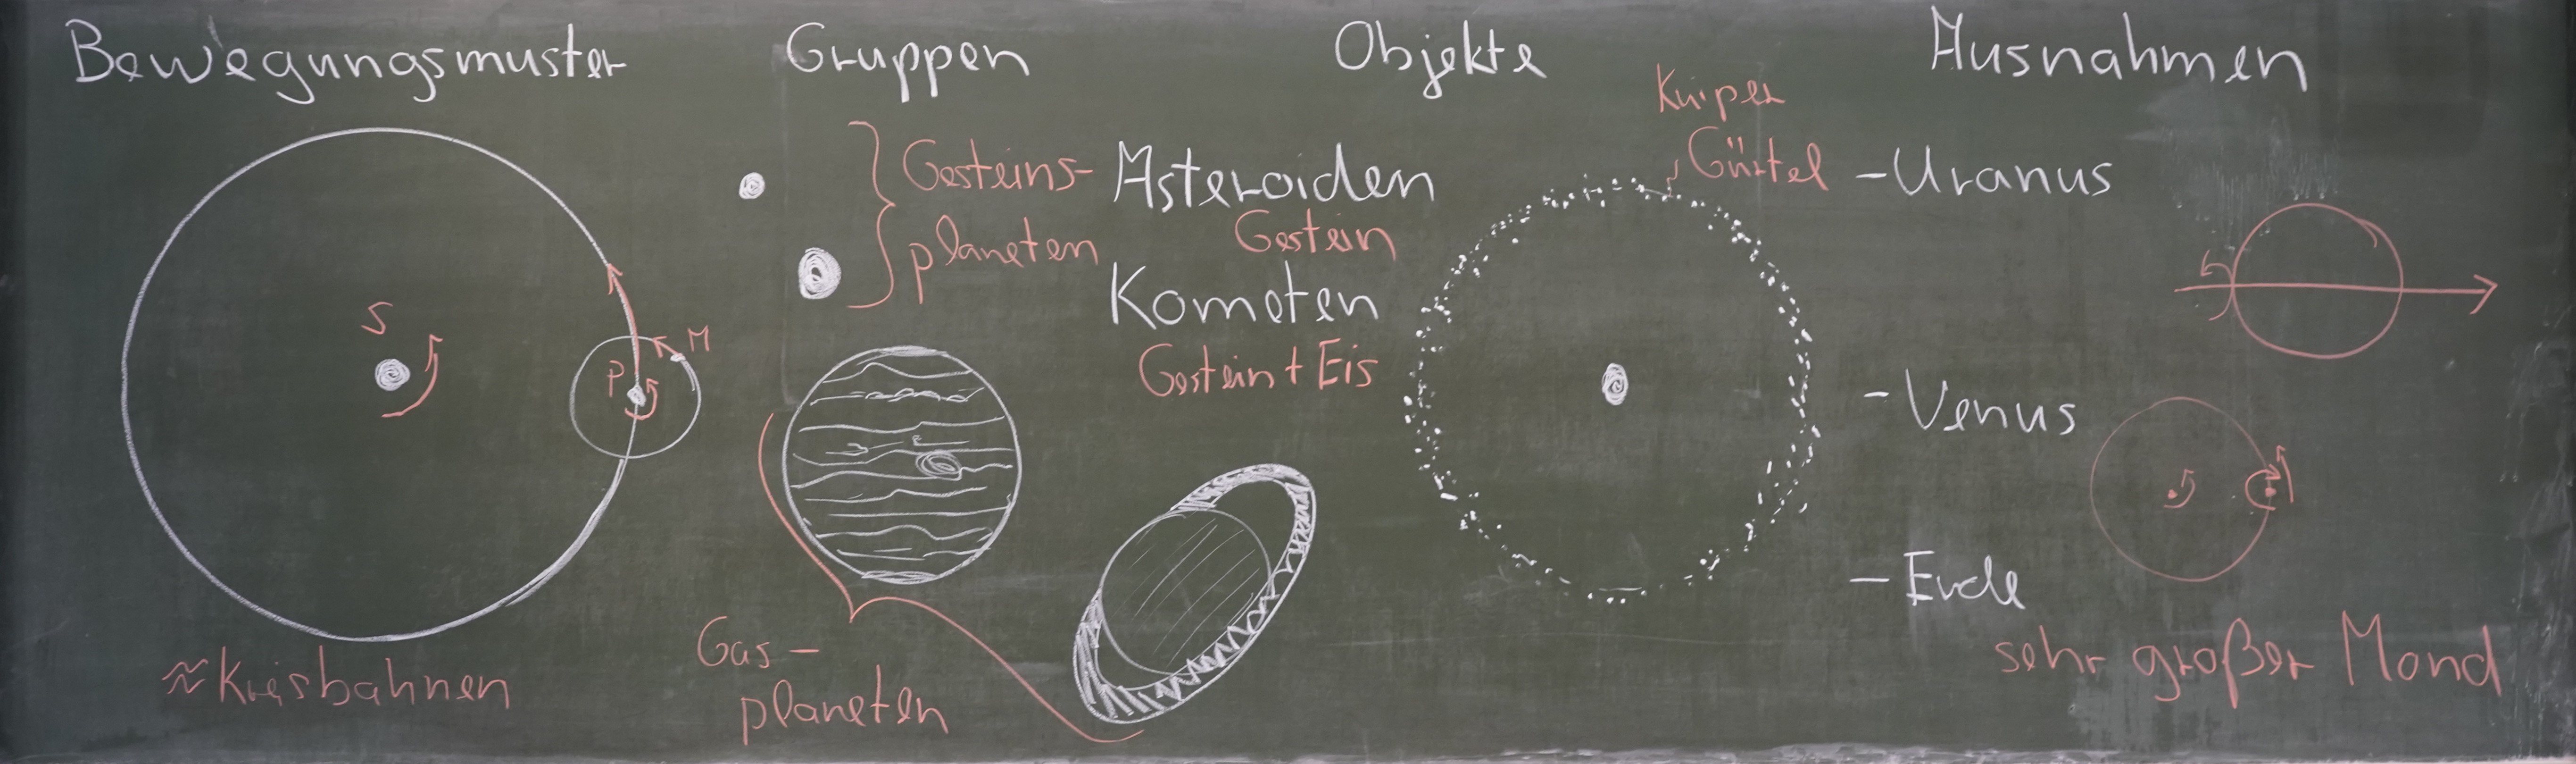 Bewegungsmuster
S
P
M
≈Kreisbahnen
Gruppen
Gesteins-
planeten
Gas-
planeten
Objekte
Asteroiden
Gestein
Kometen
Gestein + Eis
Kuiper
Gürtel
Ausnahmen
- Uranus
- Venus
- Erde
sehr großer Mond